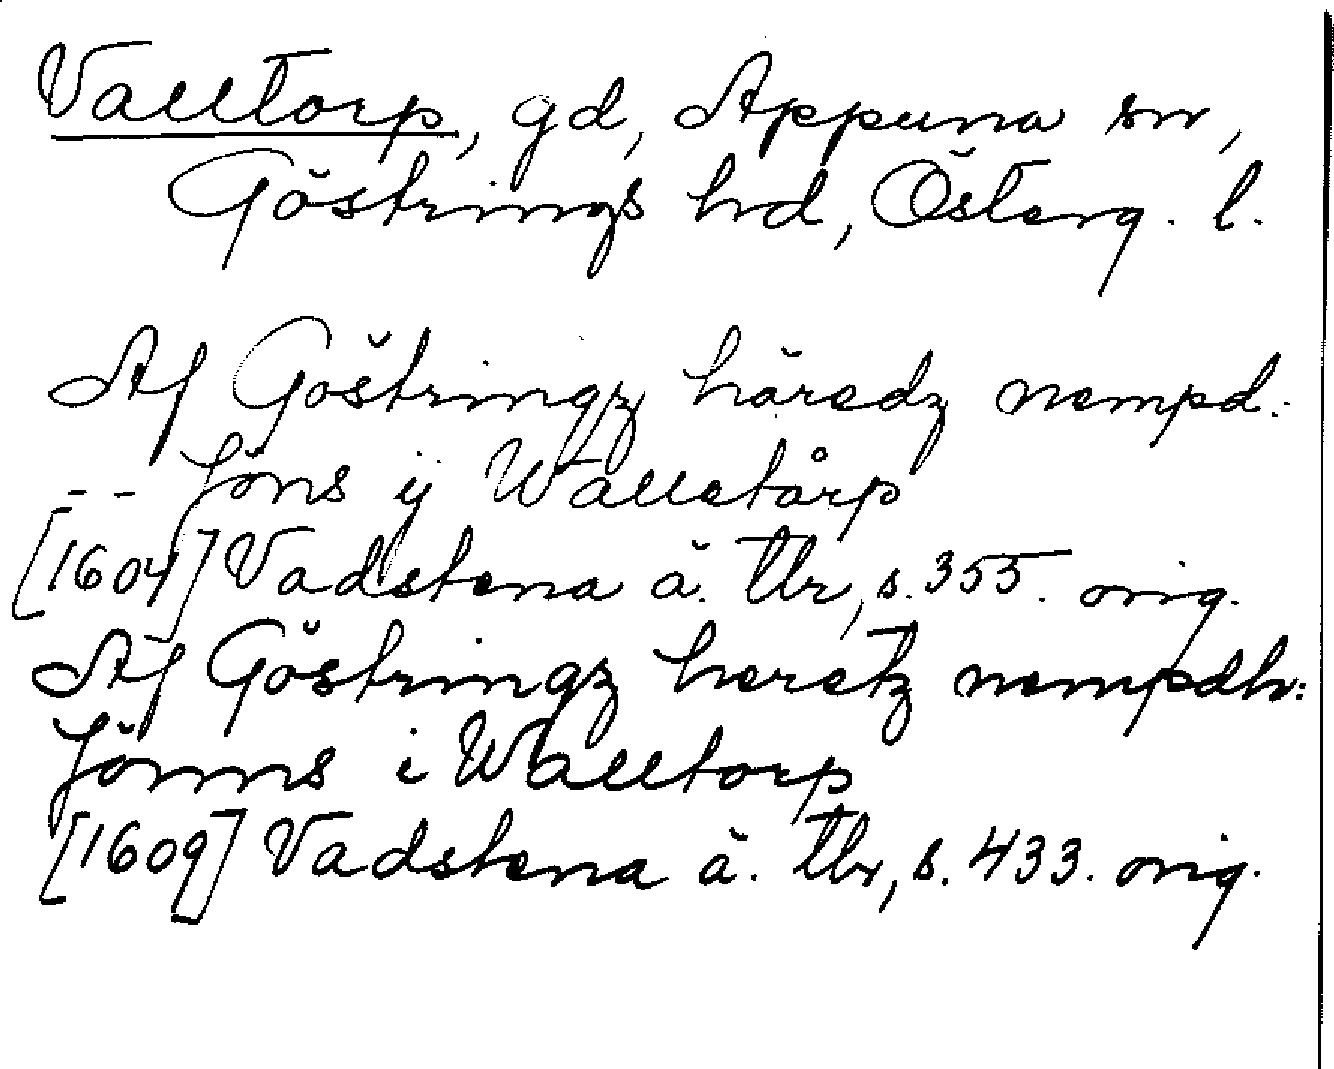 Valltorp, gd, Appuna sn,
Göstrings hd, Österg. l.
Af Göstringz häredz nempd:
-- Jöns ÿ Walletårp
[1604] Vadstena ä. tb, s. 355. orig.
Af Göstringz heretz nempdh:
Jönns i Walltorp
[1609] Vadstena ä. tb, s. 433. orig.